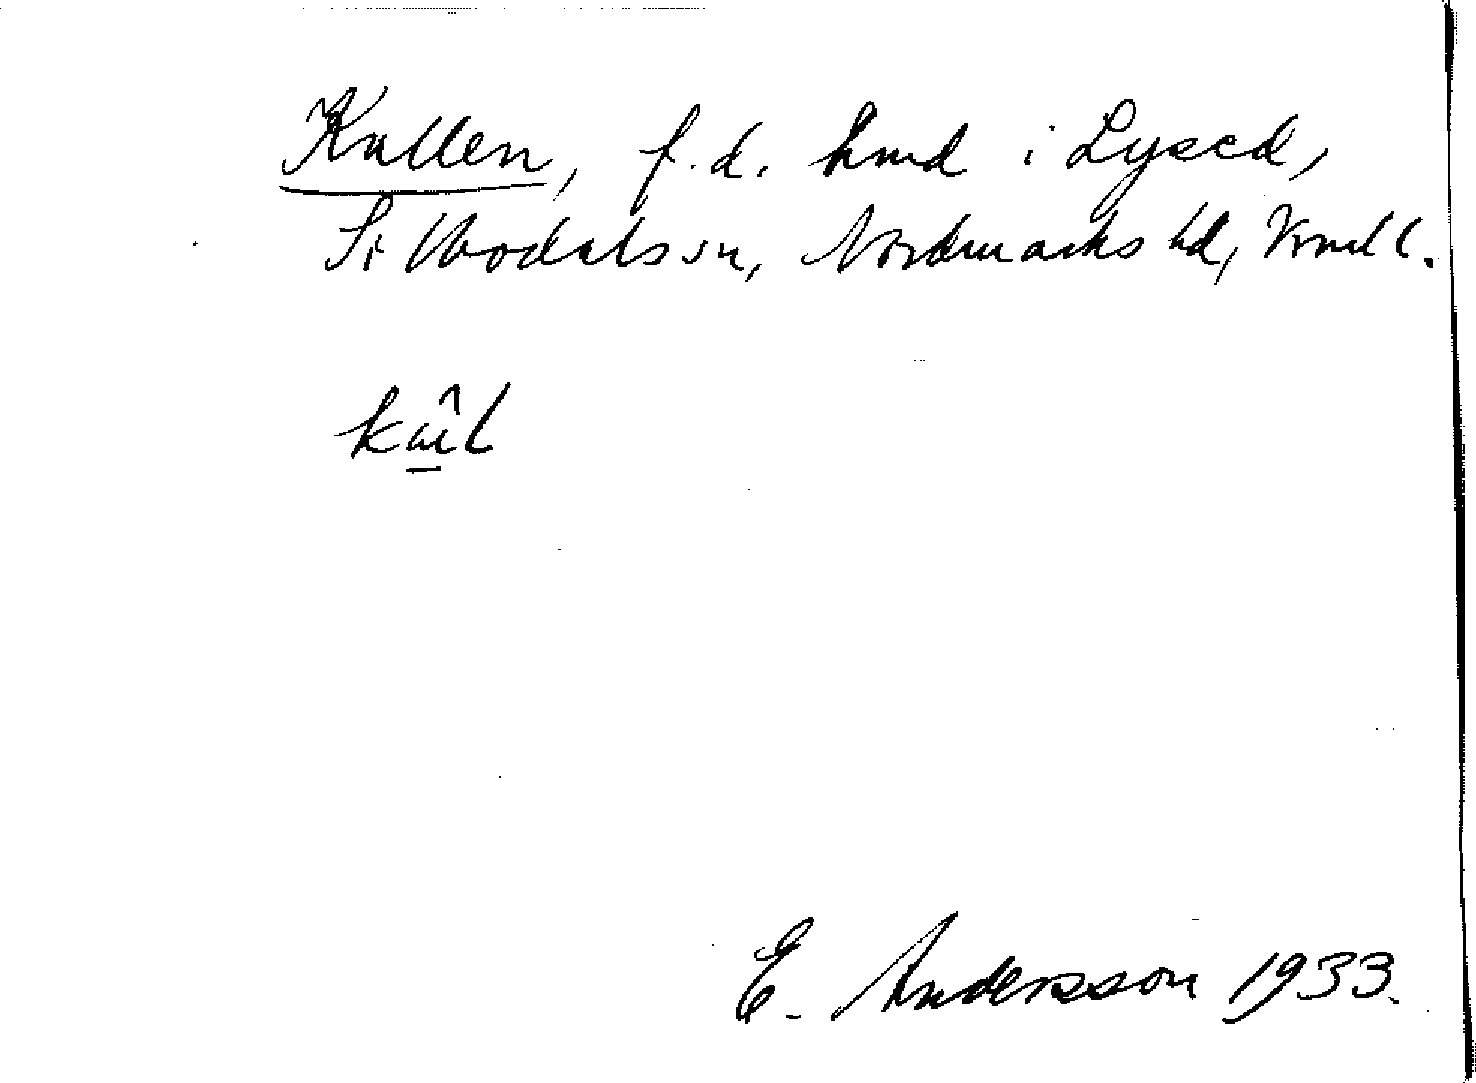 Kullen, f.d. hmd i Lysed,
Si Vbodals sn, Nordmarks hd, Vrml l.
E. Andersson 1933.